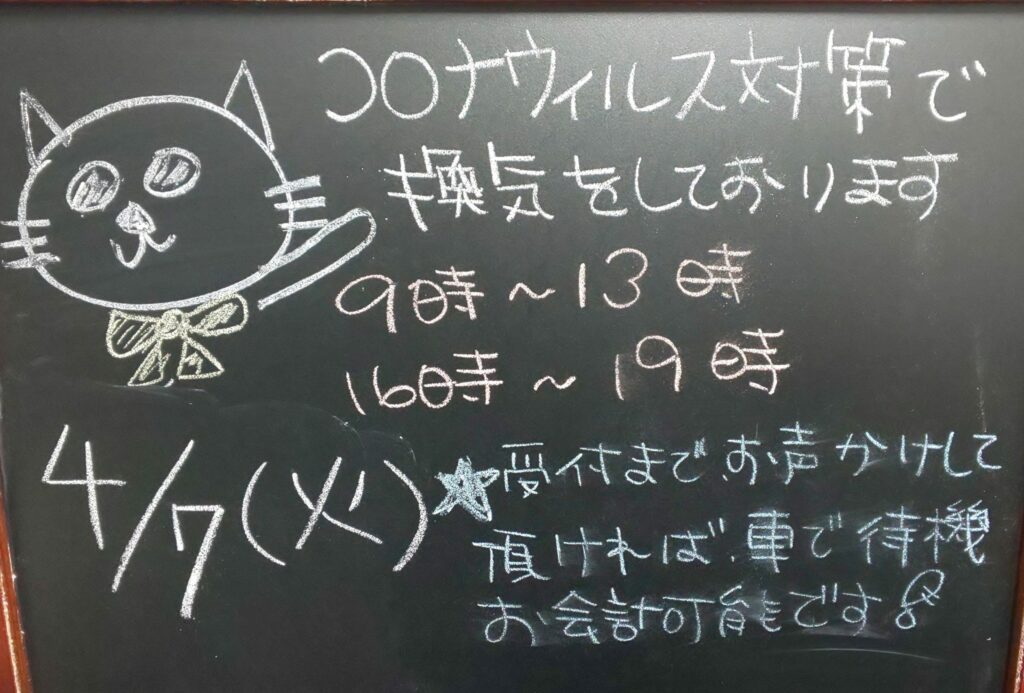 コロナウィルス対策で
換気をしております
9時~13時
16時~19時
4/7(火)
★受付まで、お声かけして
頂ければ、車で待機
お会計可能です